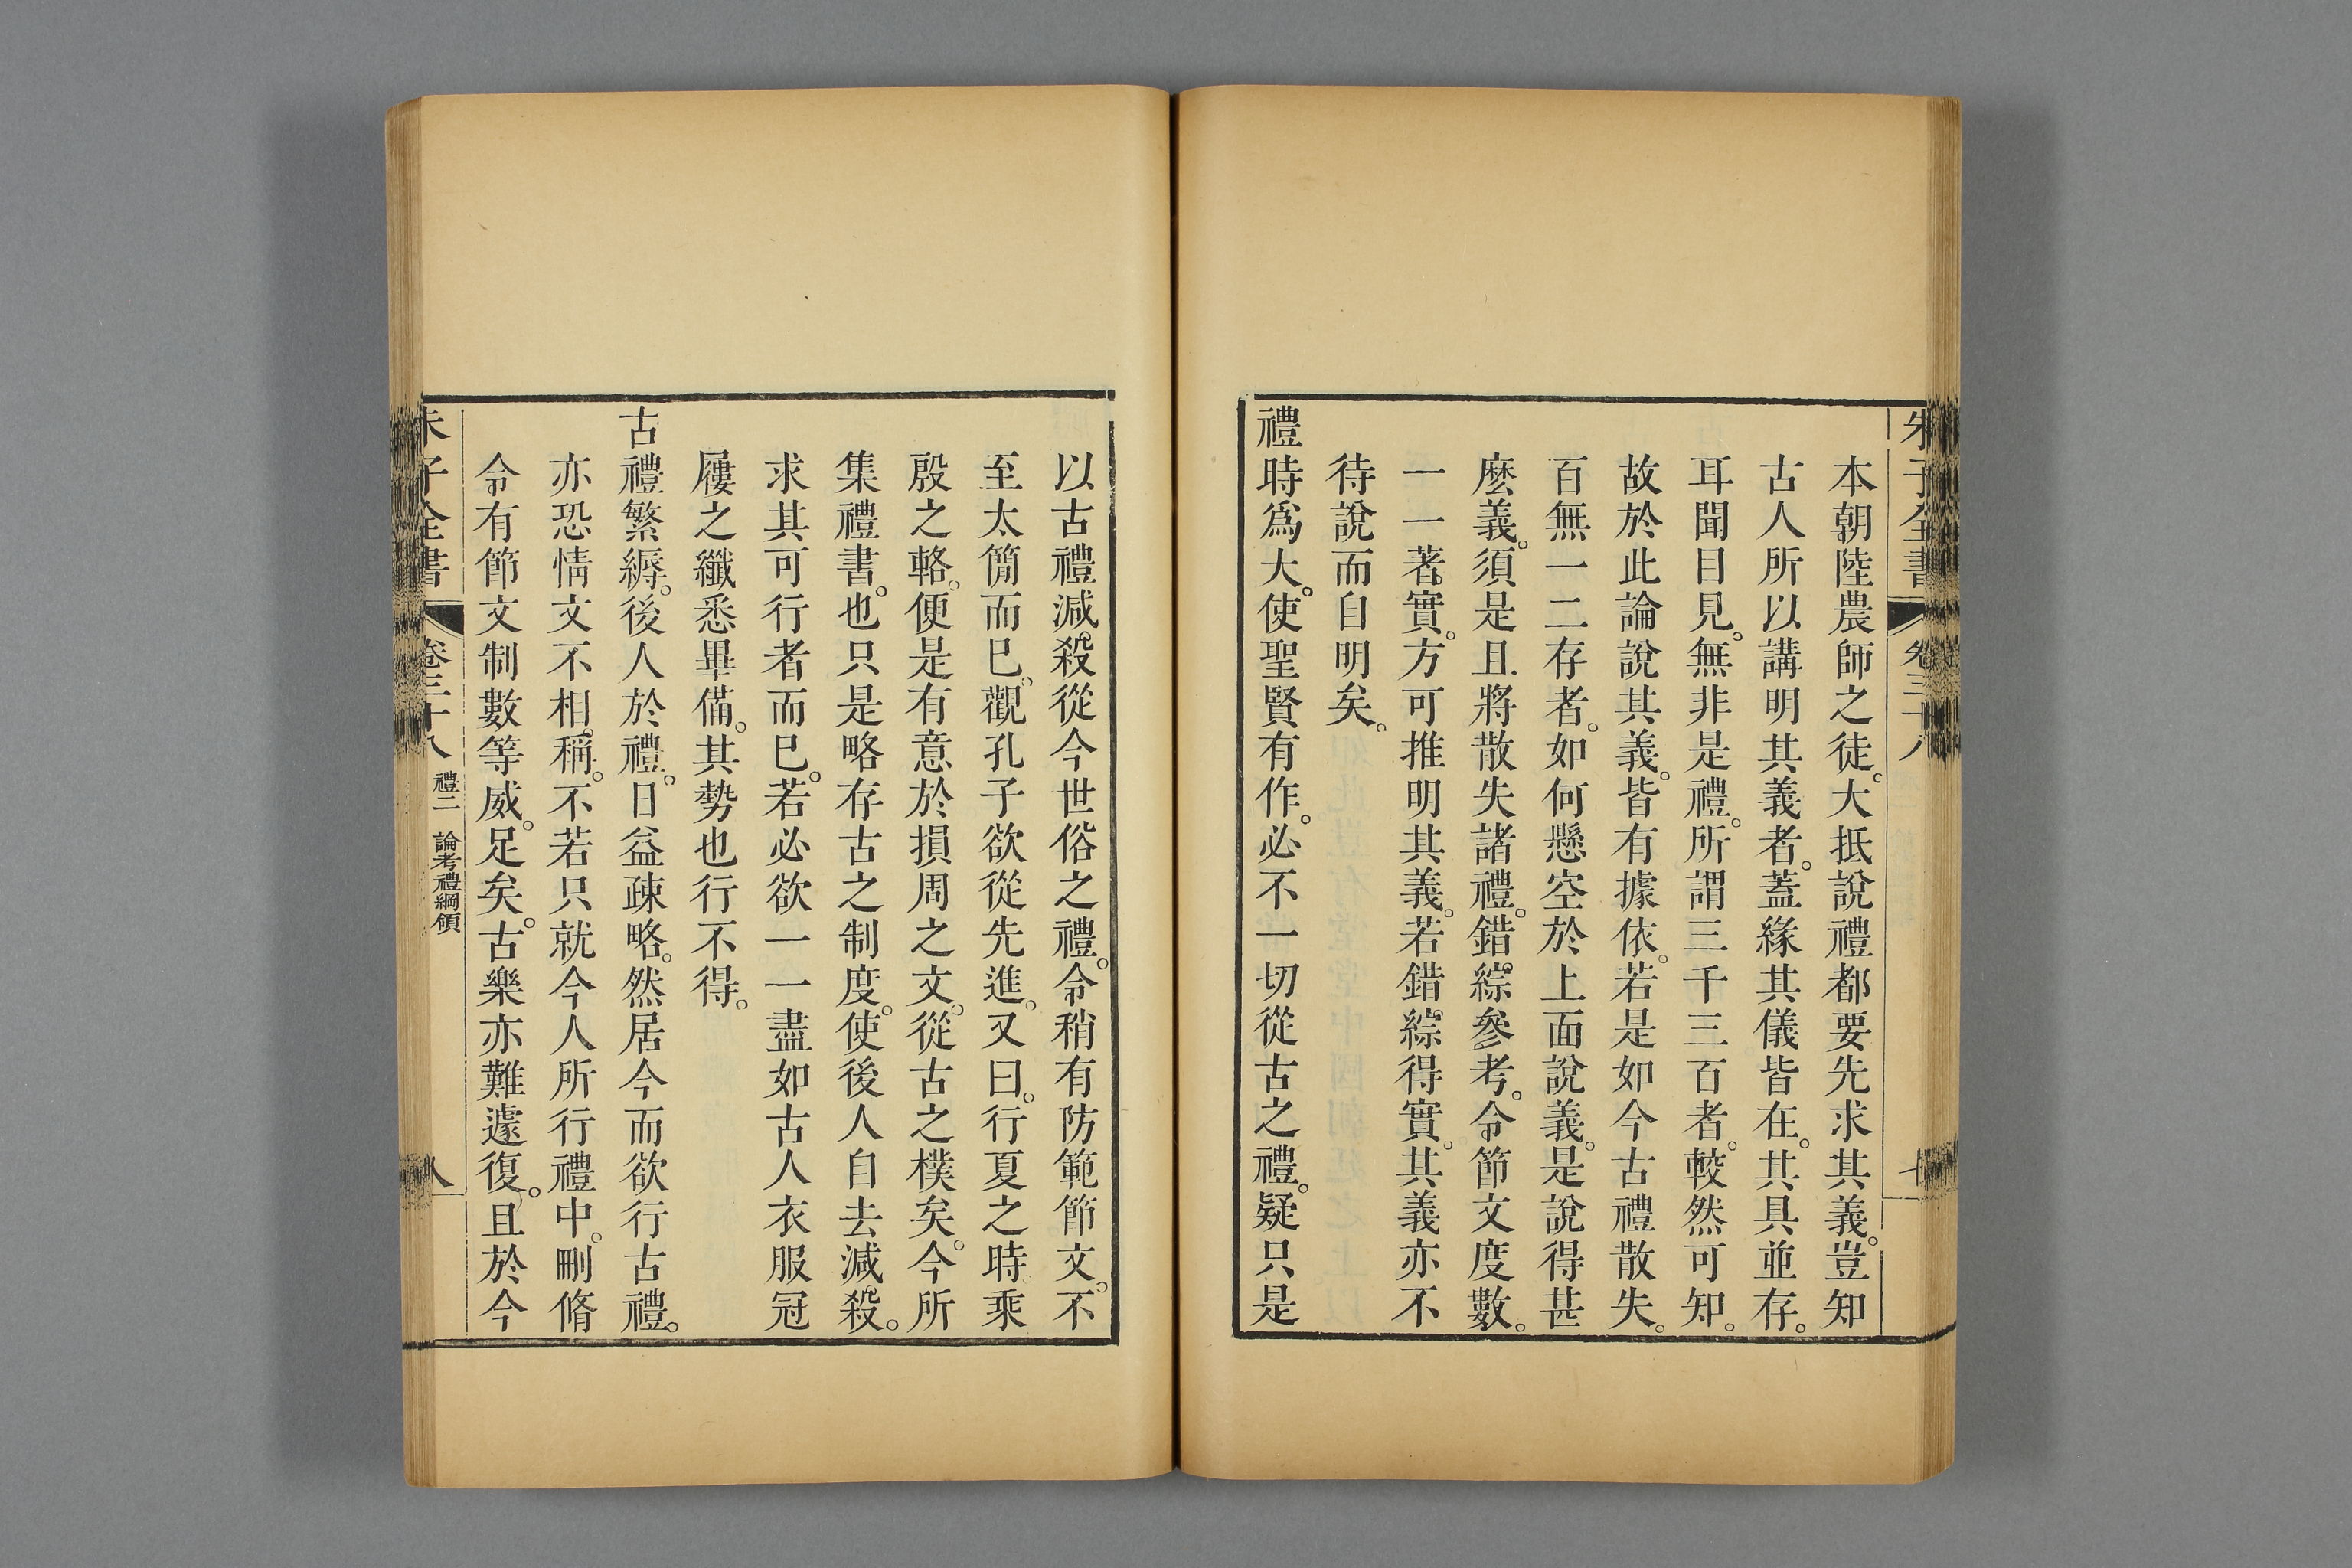 朱子全書 卷三十八
本朝陸農師之徒。大抵說禮都要先求其義。豈知
古人所以講明其義者。蓋緣其儀皆在。其具並存。
耳聞目見。無非是禮。所謂三千三百者。較然可知。
故於此論說其義。皆有據依。若是如今古禮散失。
百無一二存者。如何懸空於上面說義。是說得甚
麽義。須是且將散失諸禮。錯綜參考。令節文度數。
一一著實。方可推明其義。若錯綜得實。其義亦不
待說而自明矣。
禮時爲大。使聖賢有作。必不一切從古之禮。疑只是
以古禮減殺從今世俗之禮。令稍有防範節文。不
至太簡而已。觀孔子欲從先進。又曰。行夏之時乘
殷之輅。便是有意於損周之文。從古之樸矣。今所
集禮書。也只是略存古之制度。使後人自去減殺。
求其可行者而已。若必欲一一盡如古人衣服冠
屨之纖悉畢備。其勢也行不得。
古禮繁縟。後人於禮。日益疎略。然居今而欲行古禮。
亦恐情文不相稱。不若只就今人所行禮中。刪脩
令有節文制數等威。足矣。古樂亦難遽復。且於今
朱子全書 卷三十八 禮二 論考禮綱領 八